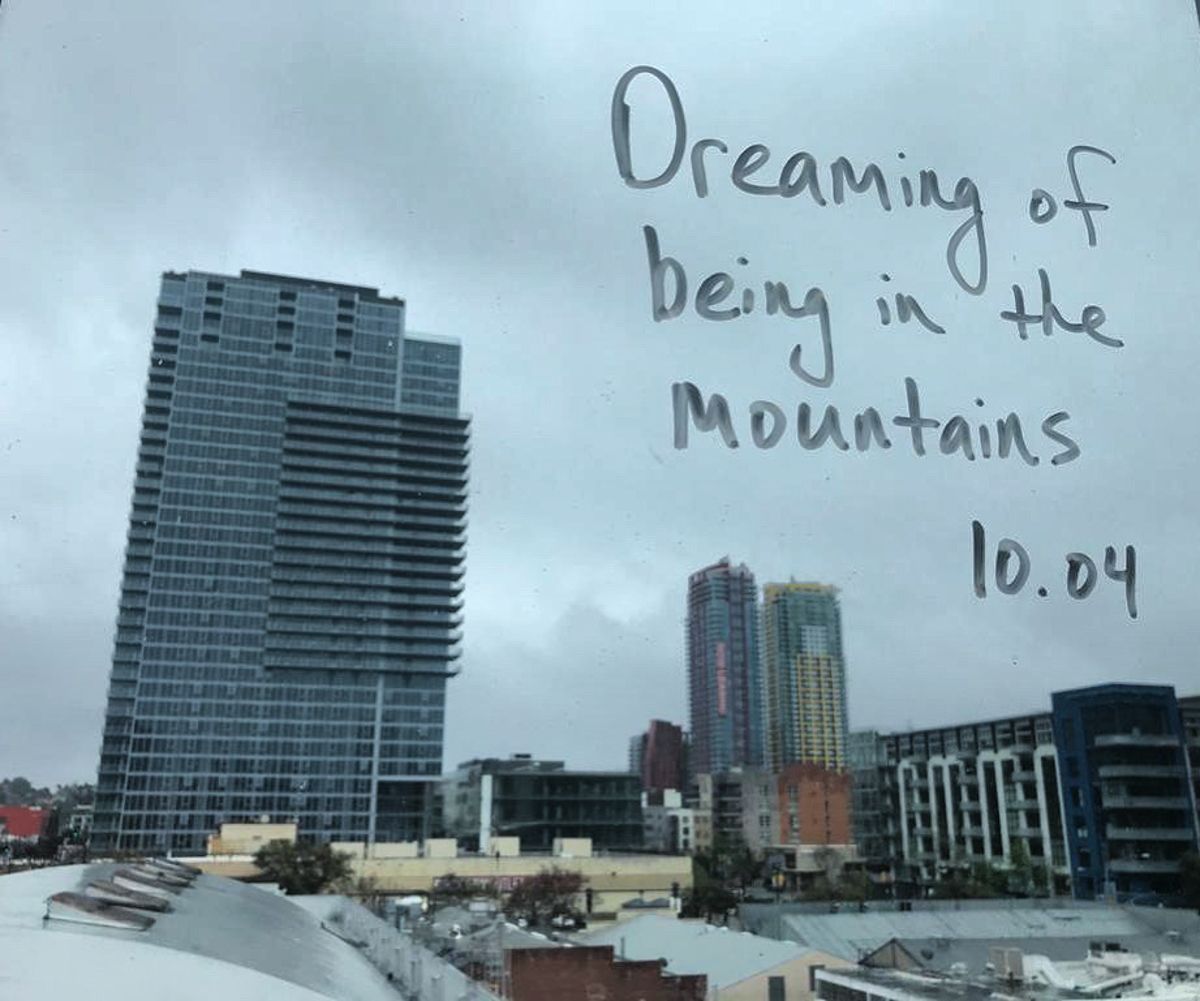 Dreaming of
being in the
Mountains
10.04